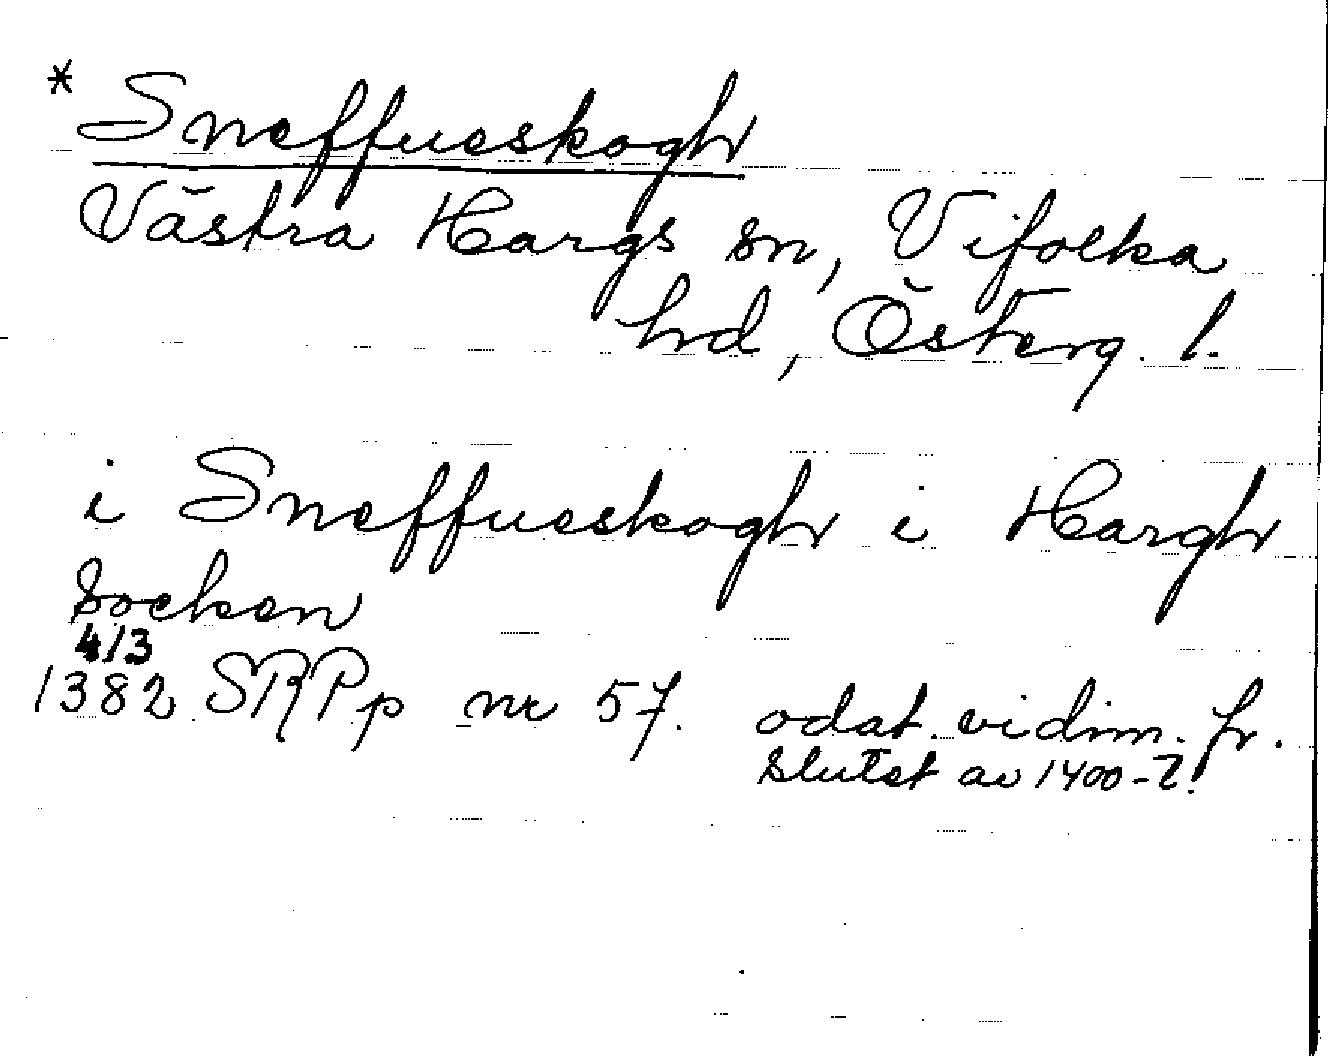 * Sneffueskogh
Västra Hargs sn, Vifolka
hd, Österg. l.
i Sneffueskogh i Hargh
socken
4/3
1382 SRPp nr 57. odat. vidim. fr.
slutet av 1400-t.